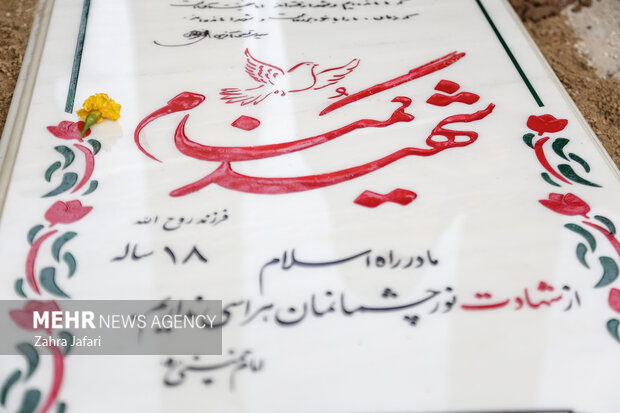 شهید گمنام
فرزند روح الله
۱۸ ساله
ما در راه اسلام
از شهادت نور چشمانمان هراسی نداریم
امام خمینی ره
MEHR NEWS AGENCY
Zahra Jafari